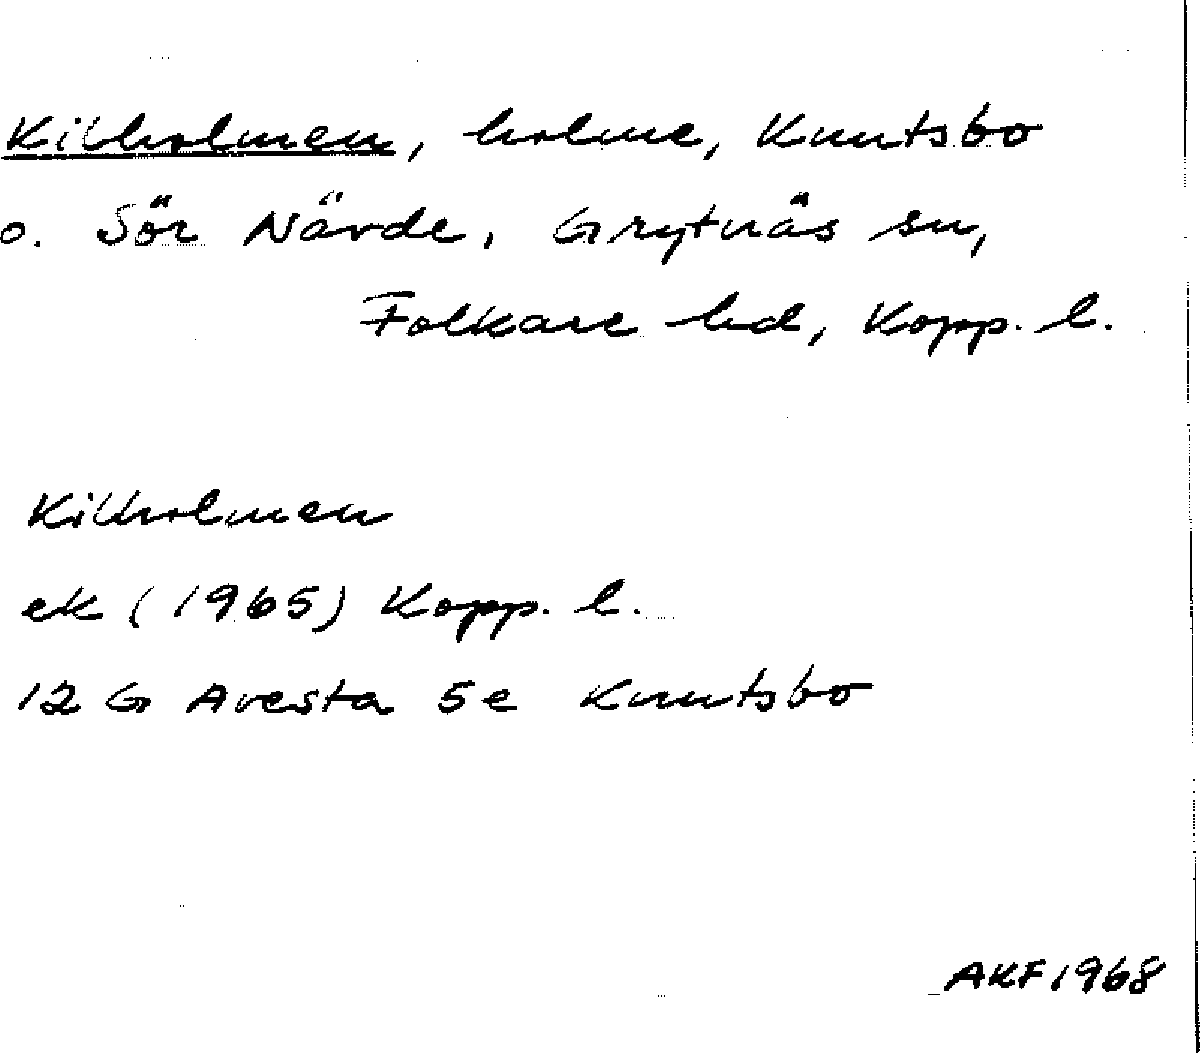 Kilholmen, holme, Knutsbo
o. Sör Närde, Grytnäs sn,
Folkare hd, Kopp. l.
Kilholmen
ek (1965) Kopp. l.
12 G Avesta 5e Knutsbo
AKF 1968